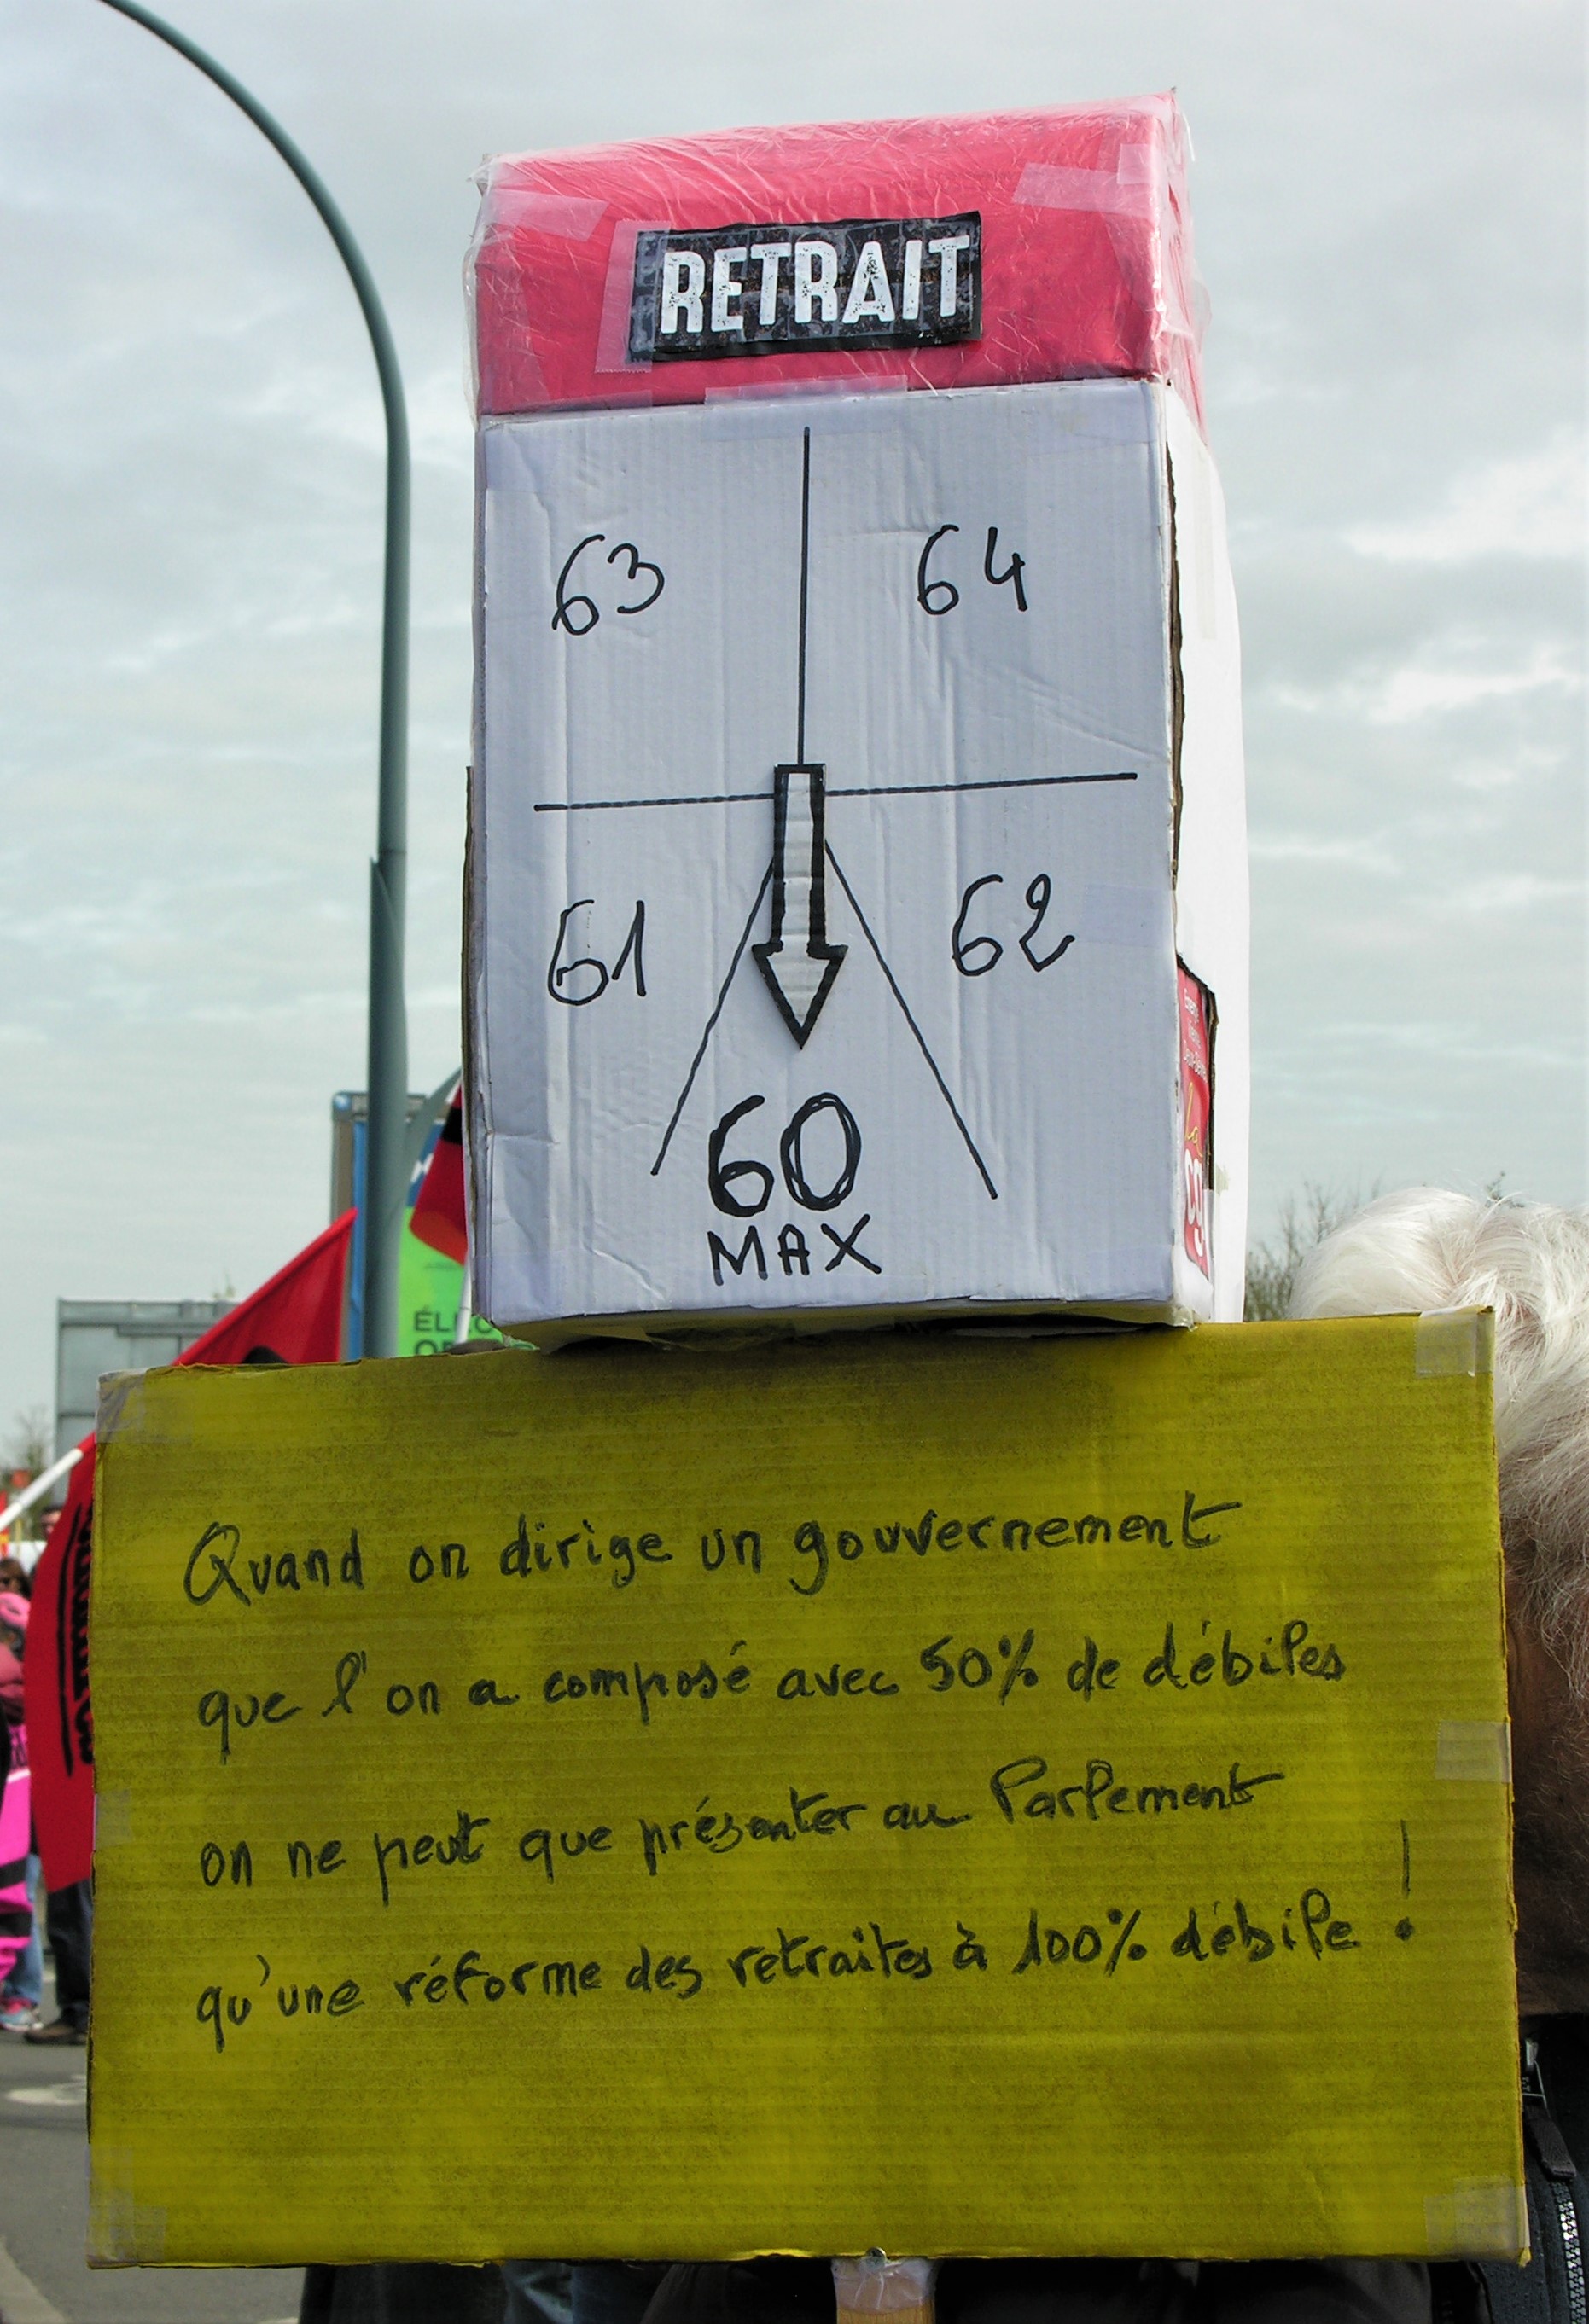 RETRAIT
63
64
61
62
60
MAX
la
cg
ÉLEC
Quand on dirige un gouvernement
que l'on a composé avec 50% de débiles
on ne peut que présenter au Parlement
qu'une réforme des retraites à 100% débile !